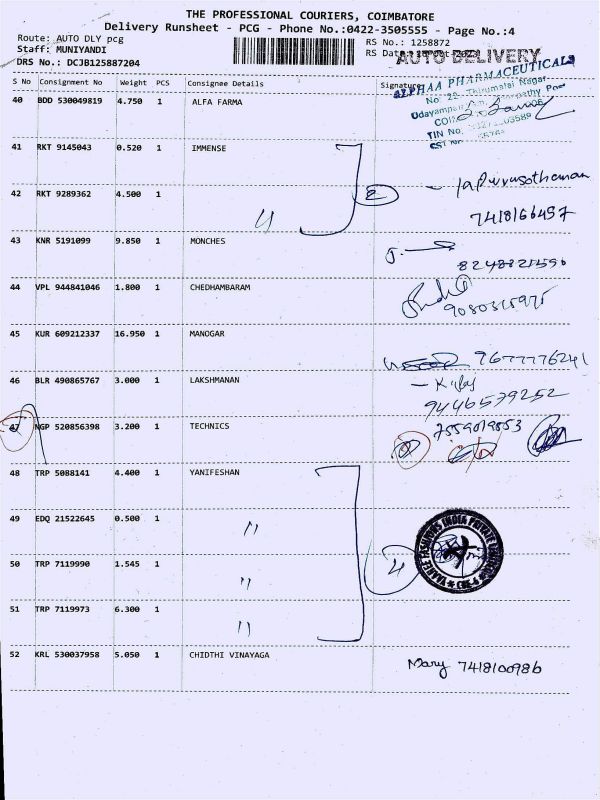 THE PROFESSIONAL COURIERS, COIMBATORE
Delivery Runsheet - PCG - Phone No.:0422-3505555 - Page No.:4
Route: AUTO DLY pcg
RS No.: 1258872
Staff: MUNIYANDI
RS Date
AUTO DELIVERY
DRS No.: DCJB125887204
S No Consignment No Weight PCS Consignee Details Signature
ALPHAA PHARMACEUTICALS
No: 22, Thirumalai Nagar
TIN No.
40 BDD 530049819 4.750 1 ALFA FARMA
41 RKT 9145043 0.520 1 IMMENSE
2
42 RKT 9289362 4.500 1 "
7418166457
43 KNR 5191099 9.850 1 MONCHES
44 VPL 944841046 1.800 1 CHEDHAMBARAM
45 KUR 609212337 16.950 1 MANOGAR
9677776241
46 BLR 490865767 3.000 1 LAKSHMANAN
9446579252
47 NGP 520856398 3.200 1 TECHNICS
7559019853
48 TRP 5088141 4.400 1 YANIFESHAN
49 EDQ 21522645 0.500 1 "
4
50 TRP 7119990 1.545 1 "
51 TRP 7119973 6.300 1 "
52 KRL 530037958 5.050 1 CHIDTHI VINAYAGA
Mary 7418100986